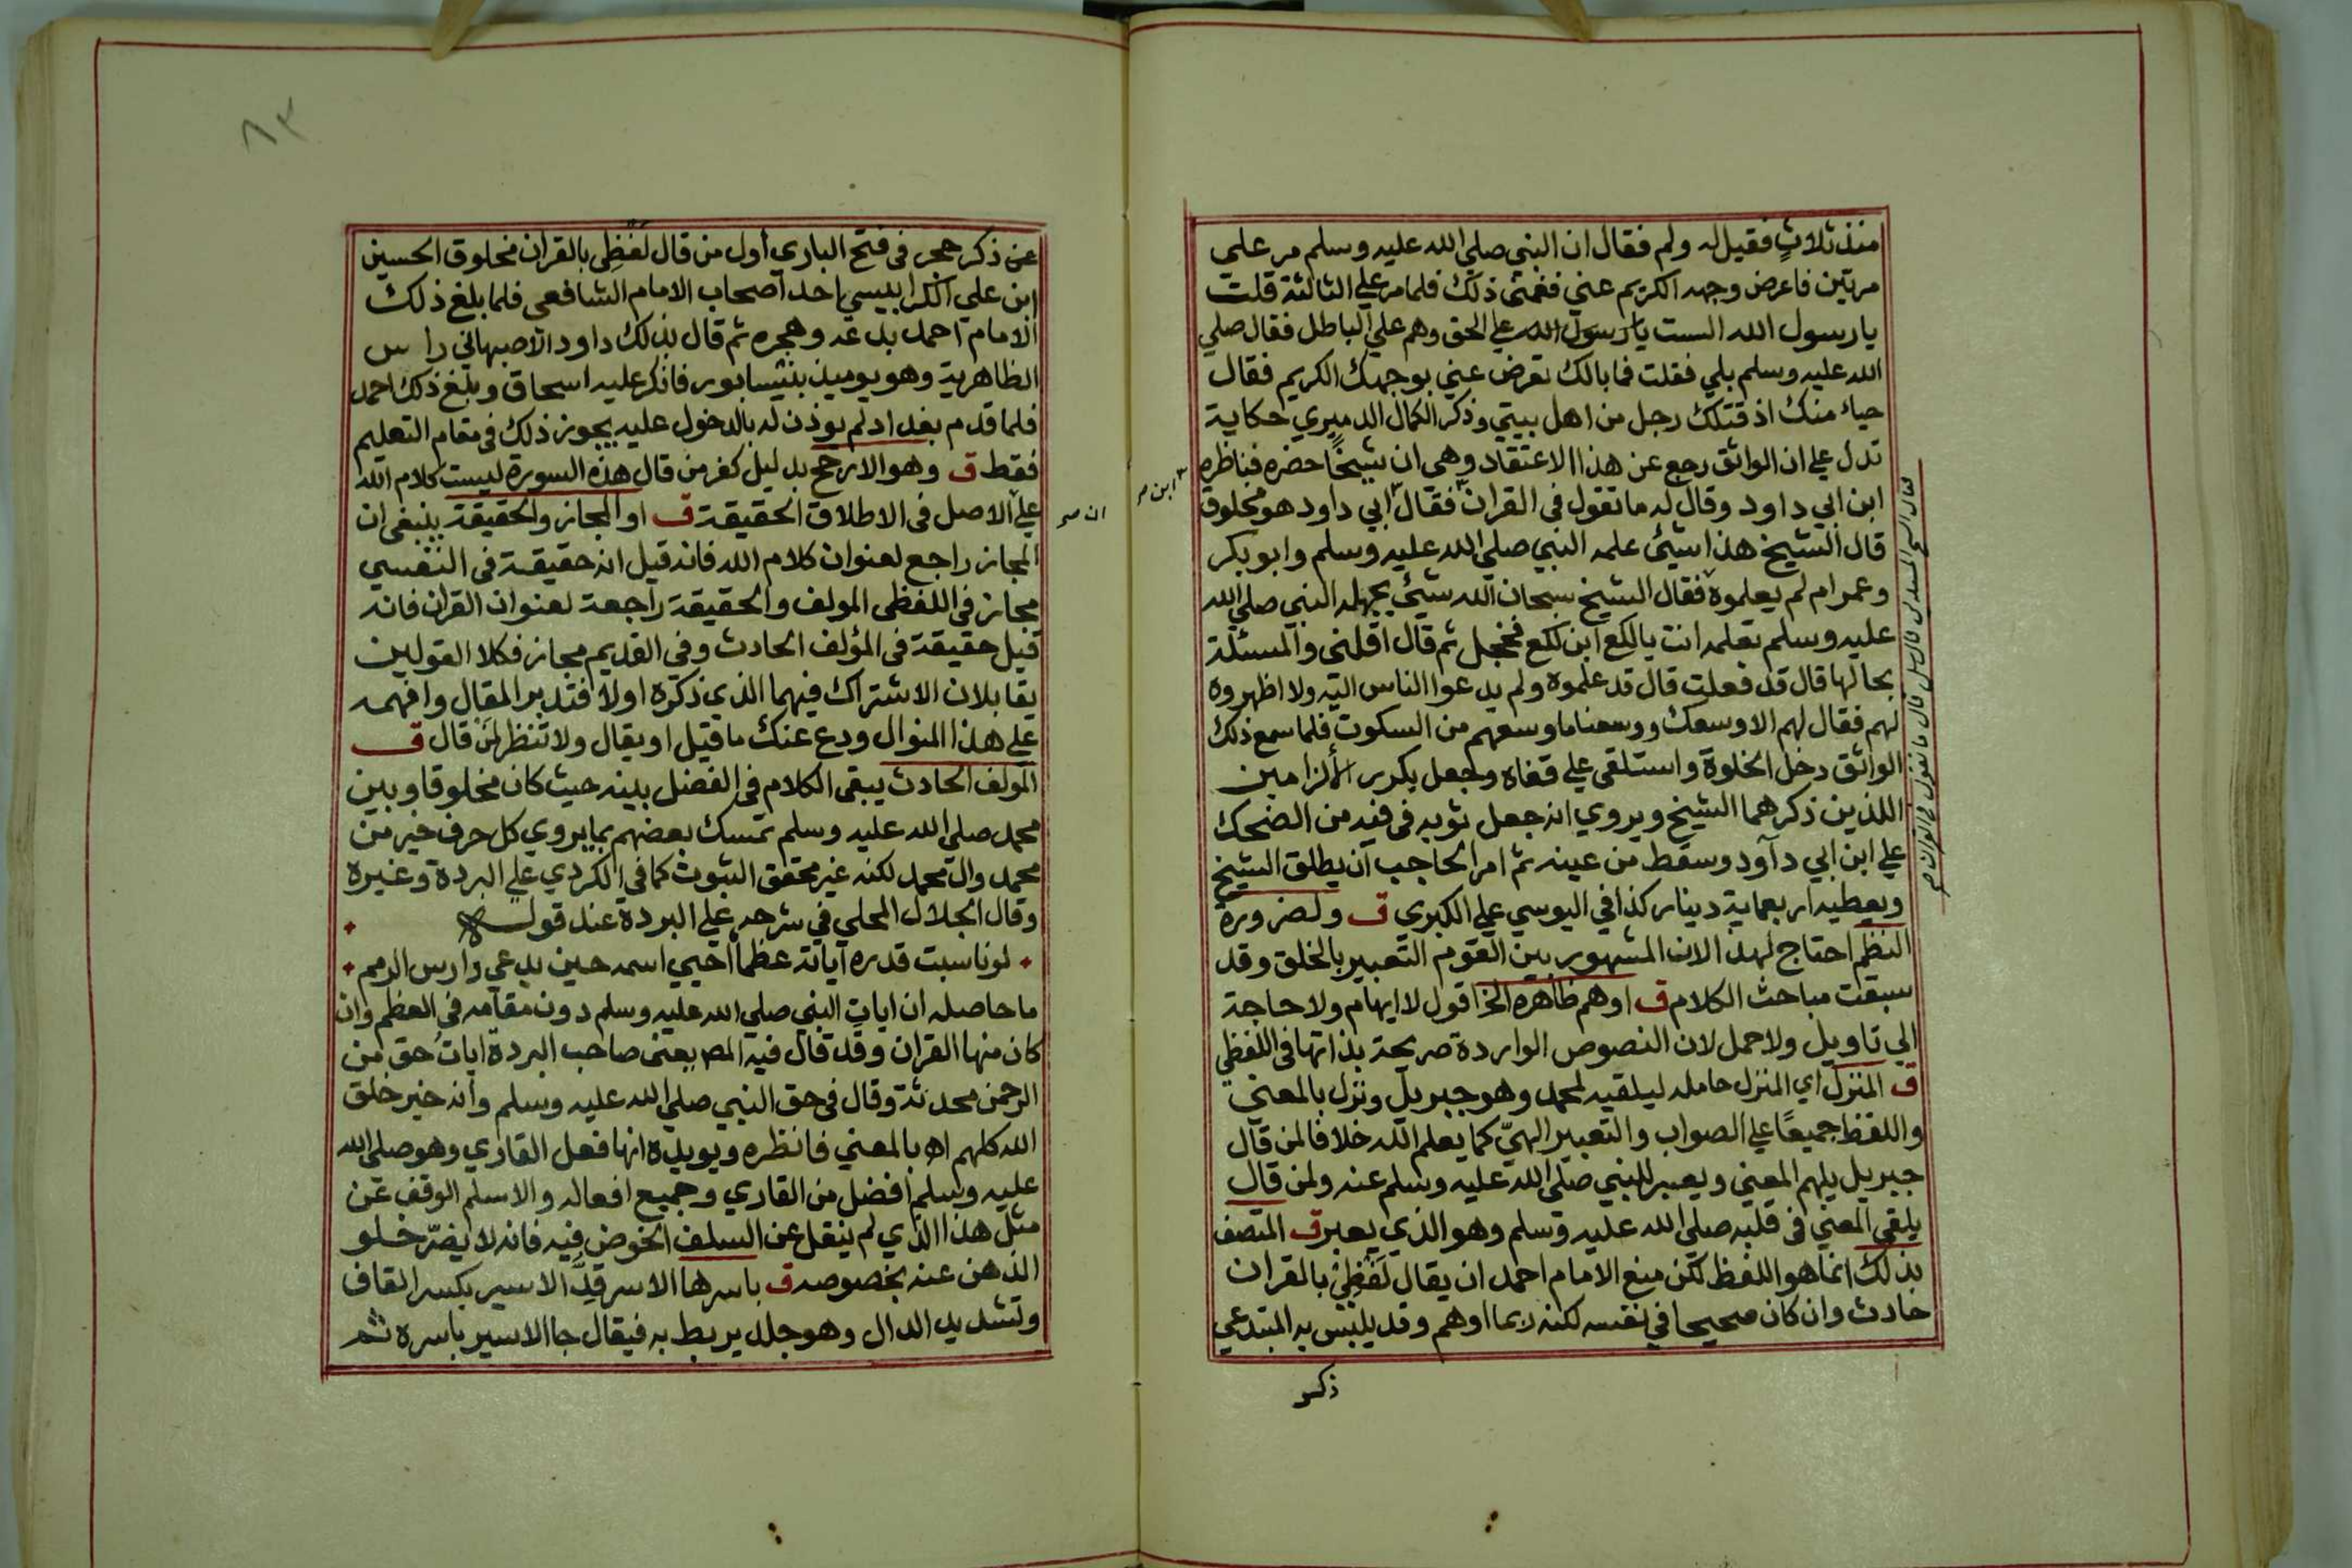 منذ ثلاثٍ فقيل له ولم فقال ان النبي صلي الله عليه وسلم مر علي
مرتين فاعرض وجهه الكريم عني فغمني ذلك فلما مر علي الثالثة قلت
يا رسول الله الست يا رسول الله علي الحق وهم علي الباطل فقال صلي
الله عليه وسلم بلي فقلت فما بالك تعرض عني بوجهك الكريم فقال
حياء منك اذ قتلك رجل من اهل بيتي وذكر الكمال الدميري حكاية
تدل علي ان الواثق رجع عن هذا الاعتقاد وهي ان شيخًا حضره فناظره
ابن ابي داود وقال له ما تقول في القران فقال ابي داود هو مخلوق
قال الشيخ هذا شيئ علمه النبي صلي الله عليه وسلم وابو بكر
وعمر ام لم يعلموه فقال الشيخ سبحان الله شيئ يجهله النبي صلي الله
عليه وسلم تعلمه انت يا لكع ابن لكع فخجل ثم قال اقلني والمسئلة
بحالها قال قد فعلت قال قد علموه ولم يدعوا الناس اليه ولا اظهروه
لهم فقال لهم الا وسعك ووسعنا ما وسعهم من السكوت فلما سمع ذلك
الواثق دخل الخلوة واستلقي علي قفاه وجعل يكرر الالزامين
اللذين ذكرهما الشيخ ويروي انه جعل ثوبه في فيه من الضحك
علي ابن ابي دآود وسقط من عينه ثم امر الحاجب ان يطلق الشيخ
ويعطيه اربعماية دينار كذا في اليوسي علي الكبري ق ولضرورة
النظم احتاج لهذا لان المشهور بين القوم التعبير بالخلق وقد
سبقت مباحث الكلام ق اوهم ظاهره الخ اقول لا ايهام ولا حاجة
الي تاويل ولا حمل لان النصوص الواردة صريحة بذاتها في اللفظي
ق المنزل اي المنزل حامله ليلقيه لمحمد وهو جبريل ونزل بالمعني
واللفظ جميعًا علي الصواب والتعبير الهيّ كما يعلم الله خلافا لمن قال
جبريل يلهم المعني ويعبر للنبي صلي الله عليه وسلم عنه ولمن قال
يلقي المعني في قلبه صلي الله عليه وسلم وهو الذي يعبر ق المتصف
بذلك انما هو اللفظ لكن منع الامام احمد ان يقال لَفْظِيْ بالقران
حادث وان كان صحيحا في نفسه لكنه ربما اوهم وقد يلبس به المبتدعي
ذكر
ابن صح
عن ذكر حجر في فتح الباري أول من قال لفظِي بالقران مخلوق الحسين
ابن علي الكرابيسي احد اصحاب الامام الشافعي فلما بلغ ذلك
الامام احمد بدعه وهجره ثم قال بذلك داود الاصبهاني راس
الظاهرية وهو يوميذ بنيسابور فانكر عليه اسحاق وبلغ ذلك احمد
فلما قدم بغداد لم يوذن له بالدخول عليه يجوز ذلك في مقام التعليم
فقط ق وهو الارجح بدليل كفر من قال هذه السورة ليست كلام الله
علي الاصل في الاطلاق الحقيقة ق او المجاز والحقيقة ينبغي ان
المجاز راجع لعنوان كلام الله فانه قيل انه حقيقة في النفسي
مجاز في اللفظي المولف والحقيقة راجعة لعنوان القران فانه
قيل حقيقة في المؤلف الحادث وفي القديم مجاز فكلا القولين
يقابلان الاشتراك فيهما الذي ذكره اولا فتدبر المقال وافهمه
علي هذا المنوال ودع عنك ما قيل او يقال ولا تنظر لمن قال ق
المولف الحادث يبقي الكلام في الفضل بينه حيث كان مخلوقا وبين
محمد صلي الله عليه وسلم تمسك بعضهم بما يروي كل حرف خير من
محمد وال محمد لكنه غير محقق الثبوت كما في الكردي علي البردة وغيره
وقال الجلال المحلي في شرحه علي البردة عند قوله
لو ناسبت قدره اياته عظما احيي اسمه حين يدعي دارس الرمم
ما حاصله ان ايات النبي صلي الله عليه وسلم دون مقامه في العظم وان
كان منها القران وقد قال فيه المص يعني صاحب البردة ايات حق من
الرحمن محدثة وقال في حق النبي صلي الله عليه وسلم وانه خير خلق
الله كلهم اه بالمعني فانظره ويويده انها فعل القاري وهو صلي الله
عليه وسلم افضل من القاري وجميع افعاله والاسلم الوقف عن
مثل هذا الذي لم ينقل عن السلف الخوض فيه فانه لا يضرّ خلو
الذهن عنه بخصوصه ق باسرها الاسر قِدّ الاسير بكسر القاف
وتشديد الدال وهو جلد يربط به فيقال جا الاسير باسره ثم
ان صح
٨٣